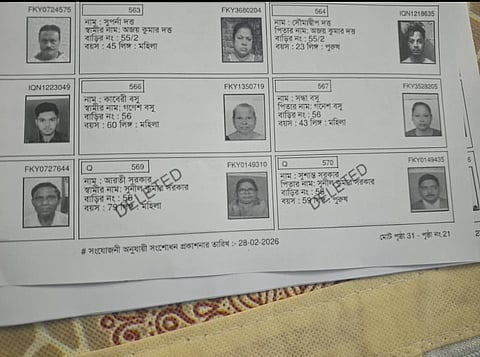 FKY0724575
563
FKY3680204
564
IQN1218635
নাম : সুপর্না দত্ত
স্বামীর নাম: অজয় কুমার দত্ত
বাড়ির নং : 55/2
বয়স : 45 লিঙ্গ : মহিলা
নাম : সৌম্যদ্বীপ দত্ত
পিতার নাম: অজয় কুমার দত্ত
বাড়ির নং : 55/2
বয়স : 23 লিঙ্গ : পুরুষ
IQN1223049
566
FKY1350719
567
FKY3528205
নাম : কাবেরী বসু
স্বামীর নাম: গণেশ বসু
বাড়ির নং : 56
বয়স : 60 লিঙ্গ : মহিলা
নাম : সন্ধা বসু
পিতার নাম: গনেশ বসু
বাড়ির নং : 56
বয়স : 43 লিঙ্গ : মহিলা
FKY0727644
Q 569
FKY0149310
Q 570
FKY0149435
নাম : আরতী সরকার
স্বামীর নাম: সুনীল কুমার সরকার
বাড়ির নং : 58
বয়স : 79 লিঙ্গ : মহিলা
DELETED
নাম : সুশান্ত সরকার
পিতার নাম: সুনীল কুমার সরকার
বাড়ির নং : 58
বয়স : 59 লিঙ্গ : পুরুষ
DELETED
# সংযোজনী অনুযায়ী সংশোধন প্রকাশনার তারিখ :- 28-02-2026
মোট পৃষ্ঠা 31 - পৃষ্ঠা নং 21